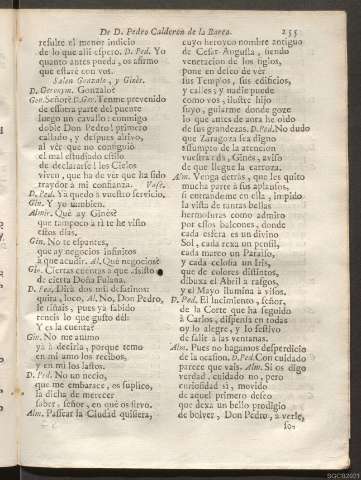 De D. Pedro Calderon de la Barca. 255
resulte el menor indicio
de lo que alli espero. D. Ped. Yo
quanto antes pueda, os afirmo
que estarè con vos.
Salen Gonzalo, y Ginès.
D. Geronym. Gonzalo?
Gon. Señor? D. Ger. Tenme prevenido
de essotra parte del puente
luego un cavallo: conmigo
doble Don Pedro! primero
callado, y despues altivo,
al vèr que no consiguiò
el mal estudiado estilo
de declararse! los Cielos
viven, que ha de vèr que ha sido
traydor à mi confianza. Vase.
D. Ped. Ya quedo à vuestro servicio.
Gin. Y yo tambien.
Almir. Què ay Ginès?
que tampoco à tì te he visto
estos dias.
Gin. No te espantes,
que ay negocios infinitos
à que acudir. Al. Què negocios?
Gin. Ciertas cuentas à que assisto
de cierta Doña Fulana.
D. Ped. Dirà dos mil desatinos:
quita, loco. Al. No, Don Pedro,
le riñais, pues ya sabido
teneis lo que gusto dèl:
Y es la cuenta?
Gin. No me animo
yà à decirla, porque temo
en mi amo los recibos,
y en mi los lastos.
D. Ped. No un necio,
que me embarace, os suplico,
la dicha de merecer
saber, señor, en què os sirvo.
Alm. Passear la Ciudad quisiera,
cuyo heroyco nombre antiguo
de Cesar-Augusta, siendo
veneracion de los siglos,
pone en deseo de vèr
sus Templos, sus edificios,
y calles; y nadie puede
como vos, ilustre hijo
suyo, guiarme donde goze
lo que antes de aora he oìdo
de sus grandezas. D. Ped. No dudo
que Zaragoza sea digno
assumpto de la atencion
vuestra: dà, Ginès, aviso
de que llegue la carroza.
Alm. Venga detràs, que les quito
mucha parte à sus aplausos,
si entrandome en ella, impido
la vista de tantas bellas
hermosuras como admiro
por essos balcones, donde
cada esfera es un divino
Sol, cada rexa un pensil,
cada marco un Paraìso,
y cada celosìa un Iris,
que de colores distintos,
dibuxa el Abril a rasgos,
y el Mayo ilumina à visos.
D. Ped. El lucimiento, señor,
de la Corte que ha seguido
à Carlos, dispensa en todas
oy lo alegre, y lo festivo
de salir à las ventanas.
Alm. Pues no hagamos desperdicio
de la ocasion. D. Ped. Con cuidado
parece que vais. Alm. Si os digo
verdad, cuidado no, pero
curiosidad sì, movido
de aquel primero deseo
que dexa un bello prodigio
de bolver, Don Pedro, à verle,
so-
SGCB2601